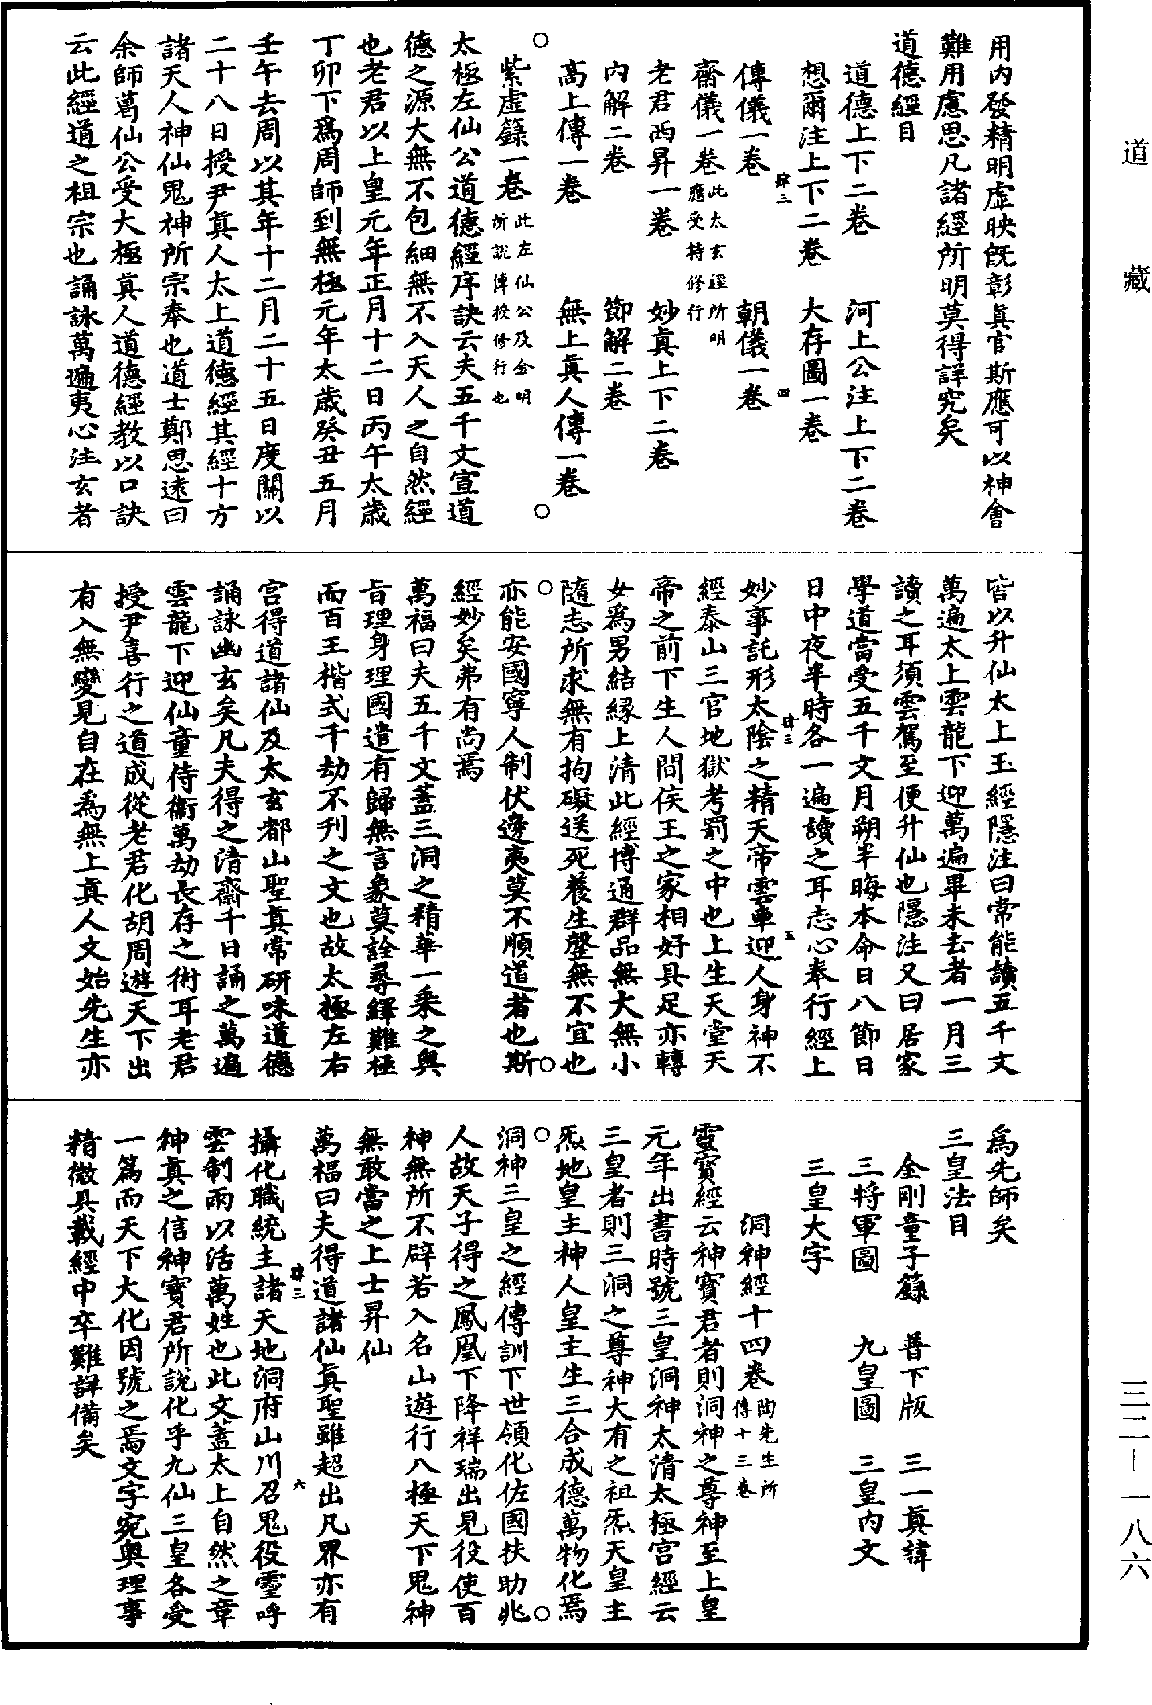 道藏
三二—一八六
用內發精明虛映旣彰眞官斯應可以神會
難用慮思凡諸經所明莫得詳究矣
道德經目
道德上下二卷　河上公注上下二卷
想爾注上下二卷　大存圖一卷
傳儀一卷　朝儀一卷
肆三　四
齋儀一卷此太玄經所明應受持修行
老君西昇一卷　妙眞上下二卷
內解二卷　節解二卷
高上傳一卷　無上眞人傳一卷
紫虛籙一卷此左仙公及金明所說傳授修行也
太極左仙公道德經序訣云夫五千文宣道
德之源大無不包細無不入天人之自然經
也老君以上皇元年正月十二日丙午太歲
丁卯下爲周師到無極元年太歲癸丑五月
壬午去周以其年十二月二十五日度關以
二十八日授尹眞人太上道德經其經十方
諸天人神仙鬼神所宗奉也道士鄭思遠曰
余師葛仙公受大極眞人道德經教以口訣
云此經道之祖宗也誦詠萬遍夷心注玄者
皆以升仙太上玉經隱注曰常能讀五千文
萬遍太上雲龍下迎萬遍畢未去者一月三
讀之耳須雲駕至便升仙也隱注又曰居家
學道當受五千文月朔半晦本命日八節日
日中夜半時各一遍讀之耳志心奉行經上
肆三　五
妙事託形太陰之精天帝雲車迎人身神不
經泰山三官地獄考罰之中也上生天堂天
帝之前下生人間侯王之家相好具足亦轉
女爲男結緣上清此經博通群品無大無小
隨志所求無有拘礙送死養生罄無不宜也
亦能安國寧人制伏邊夷莫不順道者也斯
經妙矣弗有尚焉
萬福曰夫五千文蓋三洞之精華一乘之奧
旨理身理國遣有歸無言象莫詮尋繹難極
而百王楷式千劫不刊之文也故太極左右
宮得道諸仙及太玄都山聖眞常研味道德
誦詠幽玄矣凡夫得之清齋千日誦之萬遍
雲龍下迎仙童侍衛萬劫長存之術耳老君
授尹喜行之道成從老君化胡周遊天下出
有入無變見自在爲無上眞人文始先生亦
爲先師矣
三皇法目
金剛童子籙　普下版　三一眞諱
三將軍圖　九皇圖　三皇內文
三皇大字
洞神經十四卷陶先生所傳十三卷
靈寶經云神寶君者則洞神之尊神至上皇
元年出書時號三皇洞神太清太極宮經云
三皇者則三洞之尊神大有之祖炁天皇主
炁地皇主神人皇主生三合成德萬物化焉
洞神三皇之經傳訓下世領化佐國扶助兆
人故天子得之鳳凰下降祥瑞出見役使百
神無所不辟若入名山遊行八極天下鬼神
無敢當之上士昇仙
萬福曰夫得道諸仙眞聖雖超出凡界亦有
肆三　六
攝化職統主諸天地洞府山川召鬼役靈呼
雲制雨以活萬姓也此文蓋太上自然之章
神眞之信神寶君所說化乎九仙三皇各受
一篇而天下大化因號之焉文字宛奧理事
精微具載經中卒難詳備矣